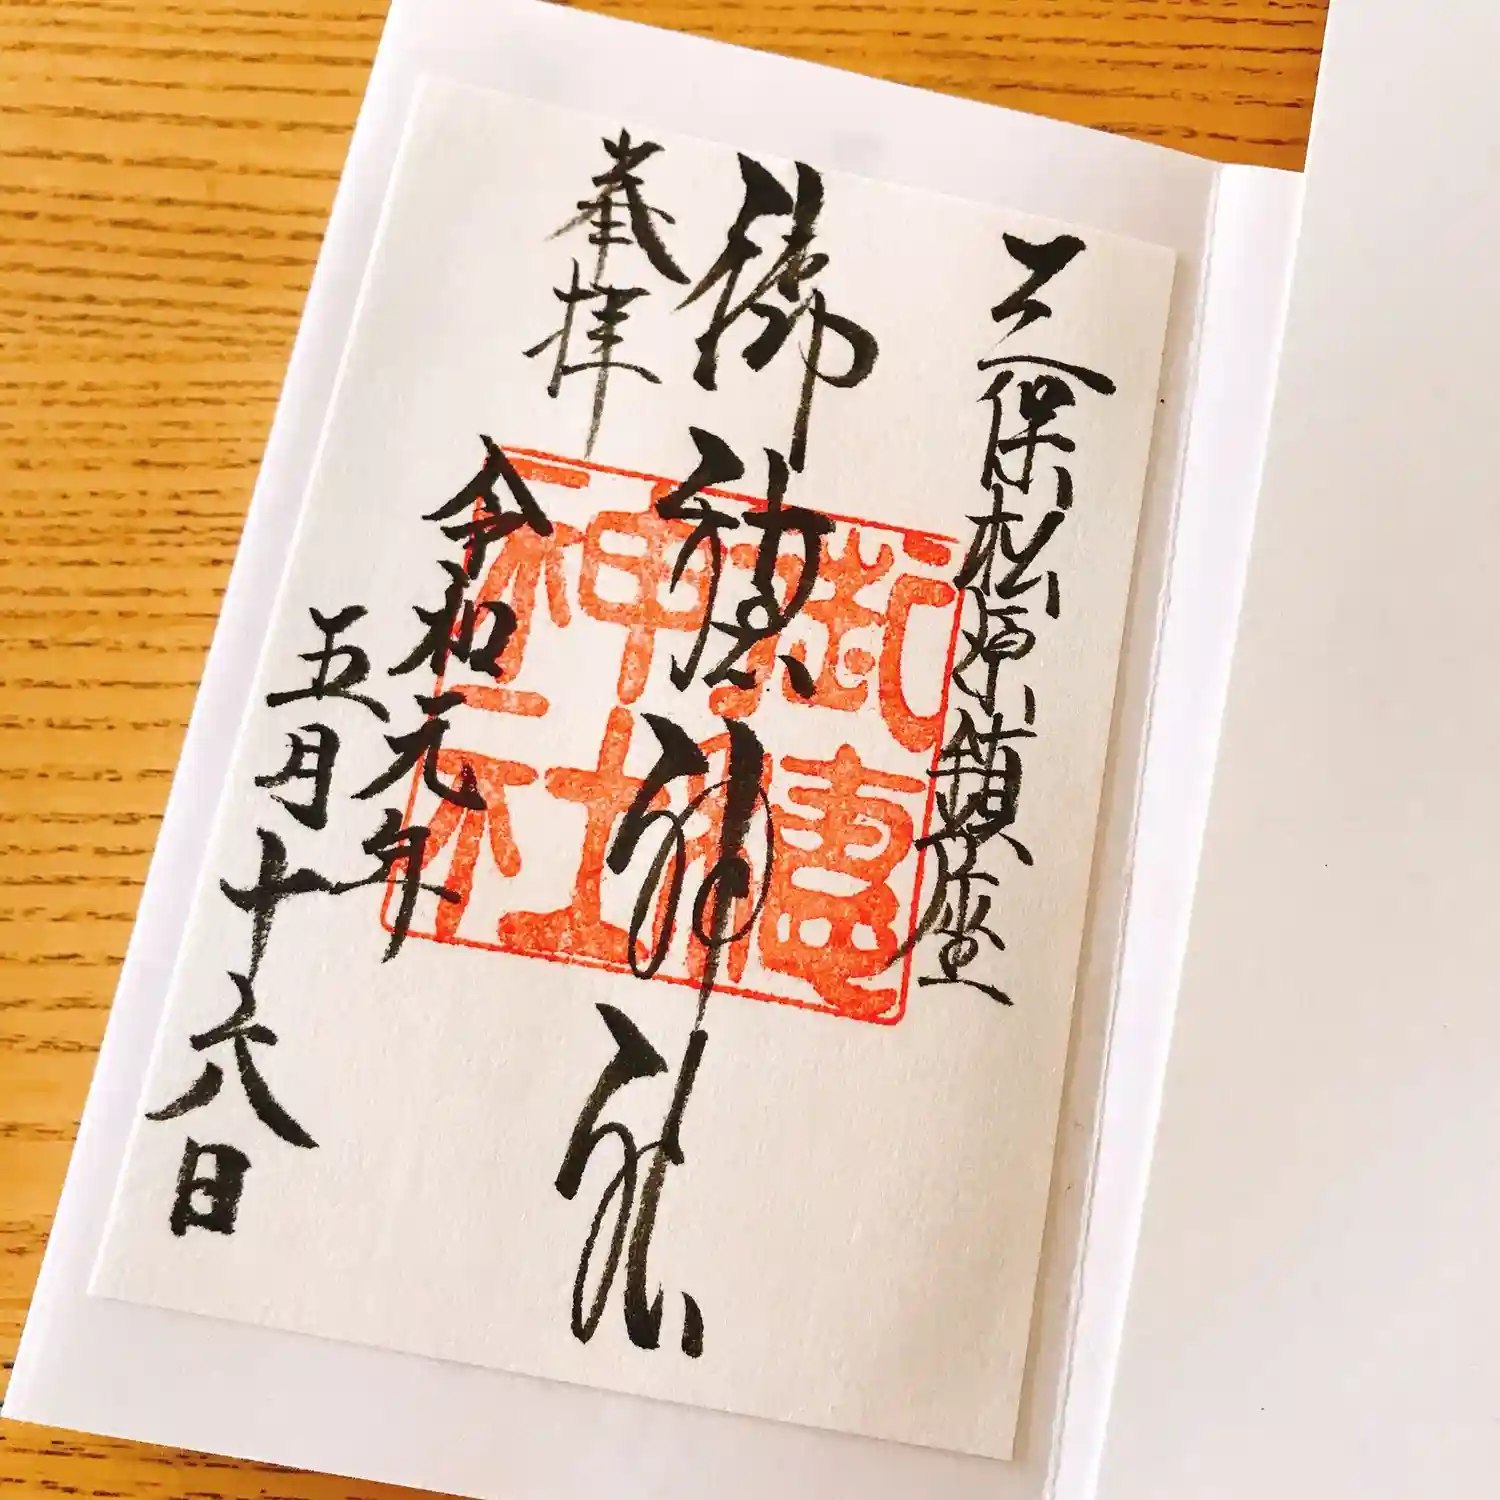 三保松原鎮座
御穂神社
奉拝
令和元年
五月十六日
御穗
神社